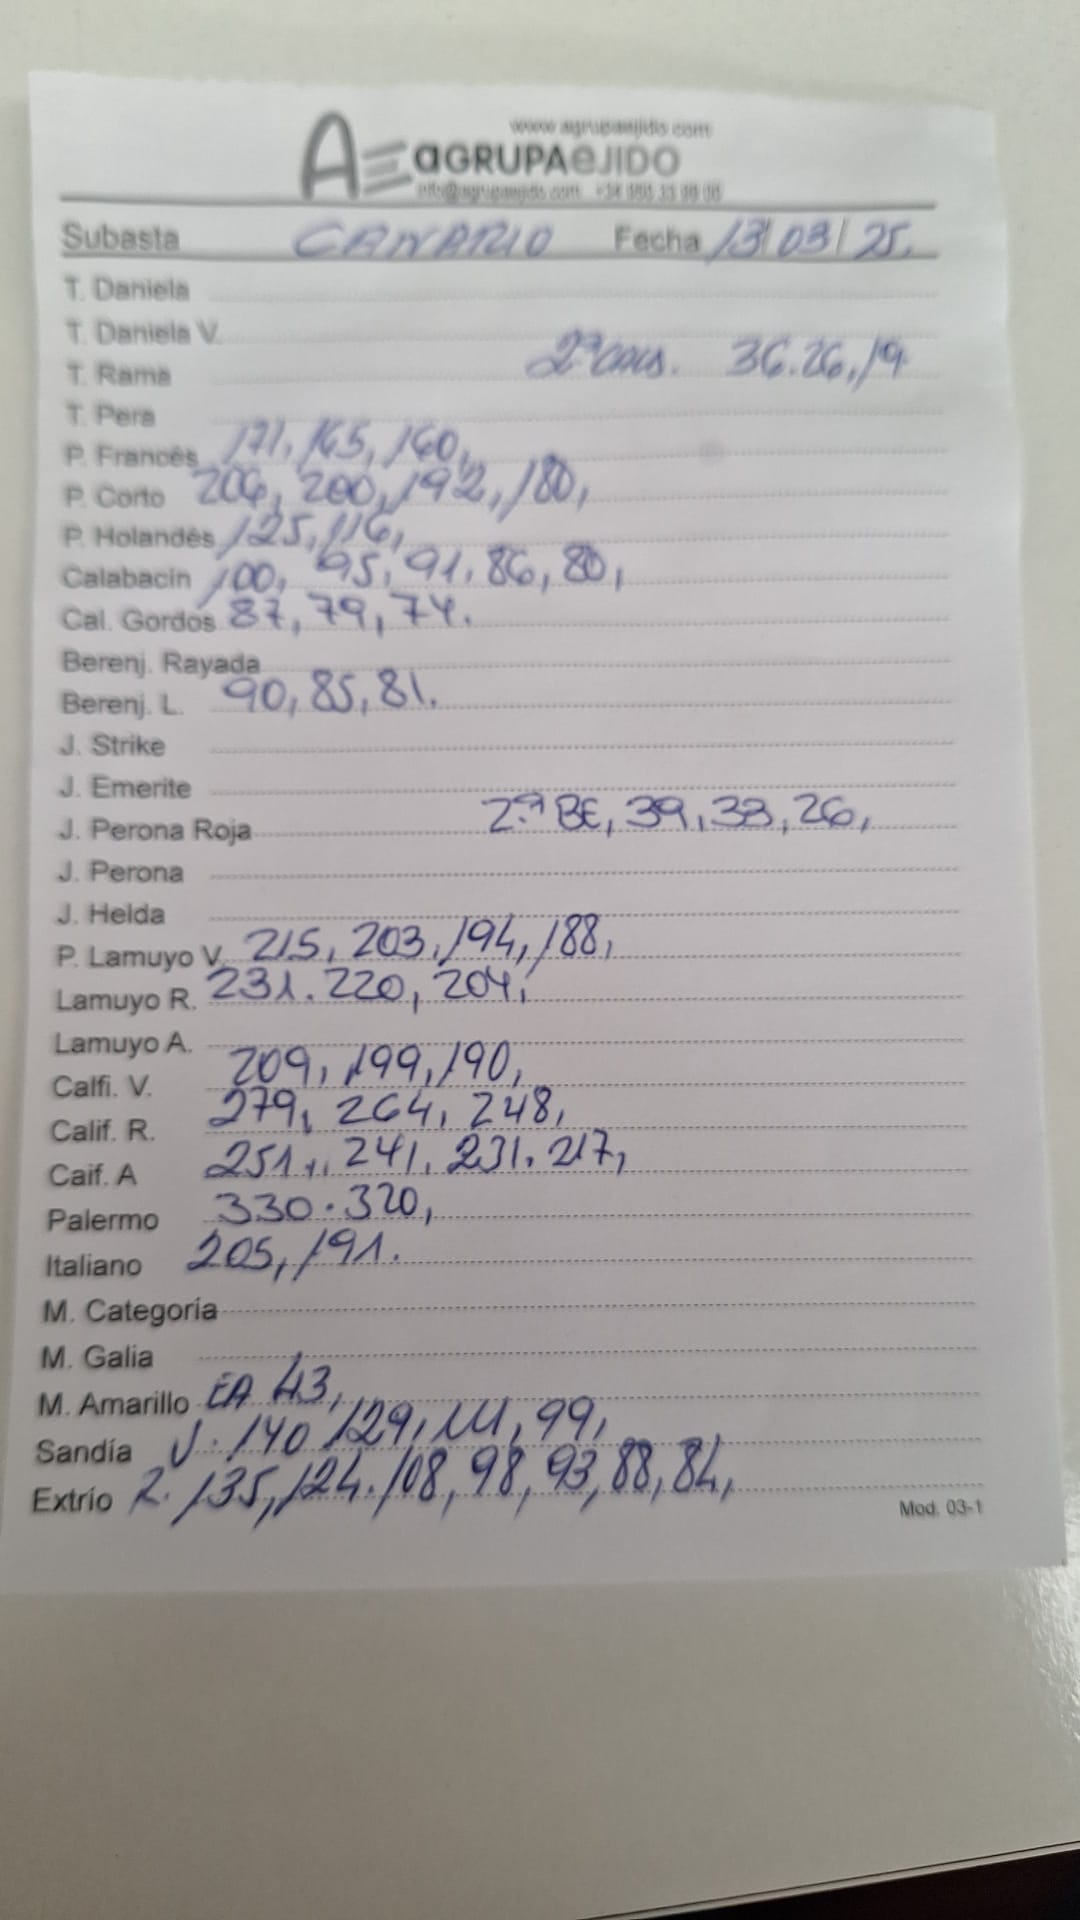 www.agrupaejido.com
AGRUPAEJIDO
info@agrupaejido.com
Subasta CANARIO Fecha 13/03/25.
T. Daniela
T. Daniela V.
2ª CALS. 36.26,19
T. Rama
T. Pera
P. Francés 171, 165, 160,
P. Corto 206, 200, 192, 180,
P. Holandés 125, 116,
Calabacín 100, 95, 91, 86, 80,
Cal. Gordos 87, 79, 74.
Berenj. Rayada
Berenj. L. 90, 85, 81.
J. Strike
J. Emerite
J. Perona Roja 2ª BE, 39, 33, 26,
J. Perona
J. Helda
P. Lamuyo V. 215, 203, 194, 188,
Lamuyo R. 231. 220, 204,
Lamuyo A.
Calfi. V. 209, 199, 190,
Calif. R. 279, 264, 248,
Caif. A 251, 241. 231. 217,
Palermo 330. 320,
Italiano 205, 191.
M. Categoría
M. Galia
M. Amarillo EA 43,
Sandía V. 140 129, 111, 99,
Extrío R. 135, 124. 108, 98, 93, 88, 84,
Mod. 03-1